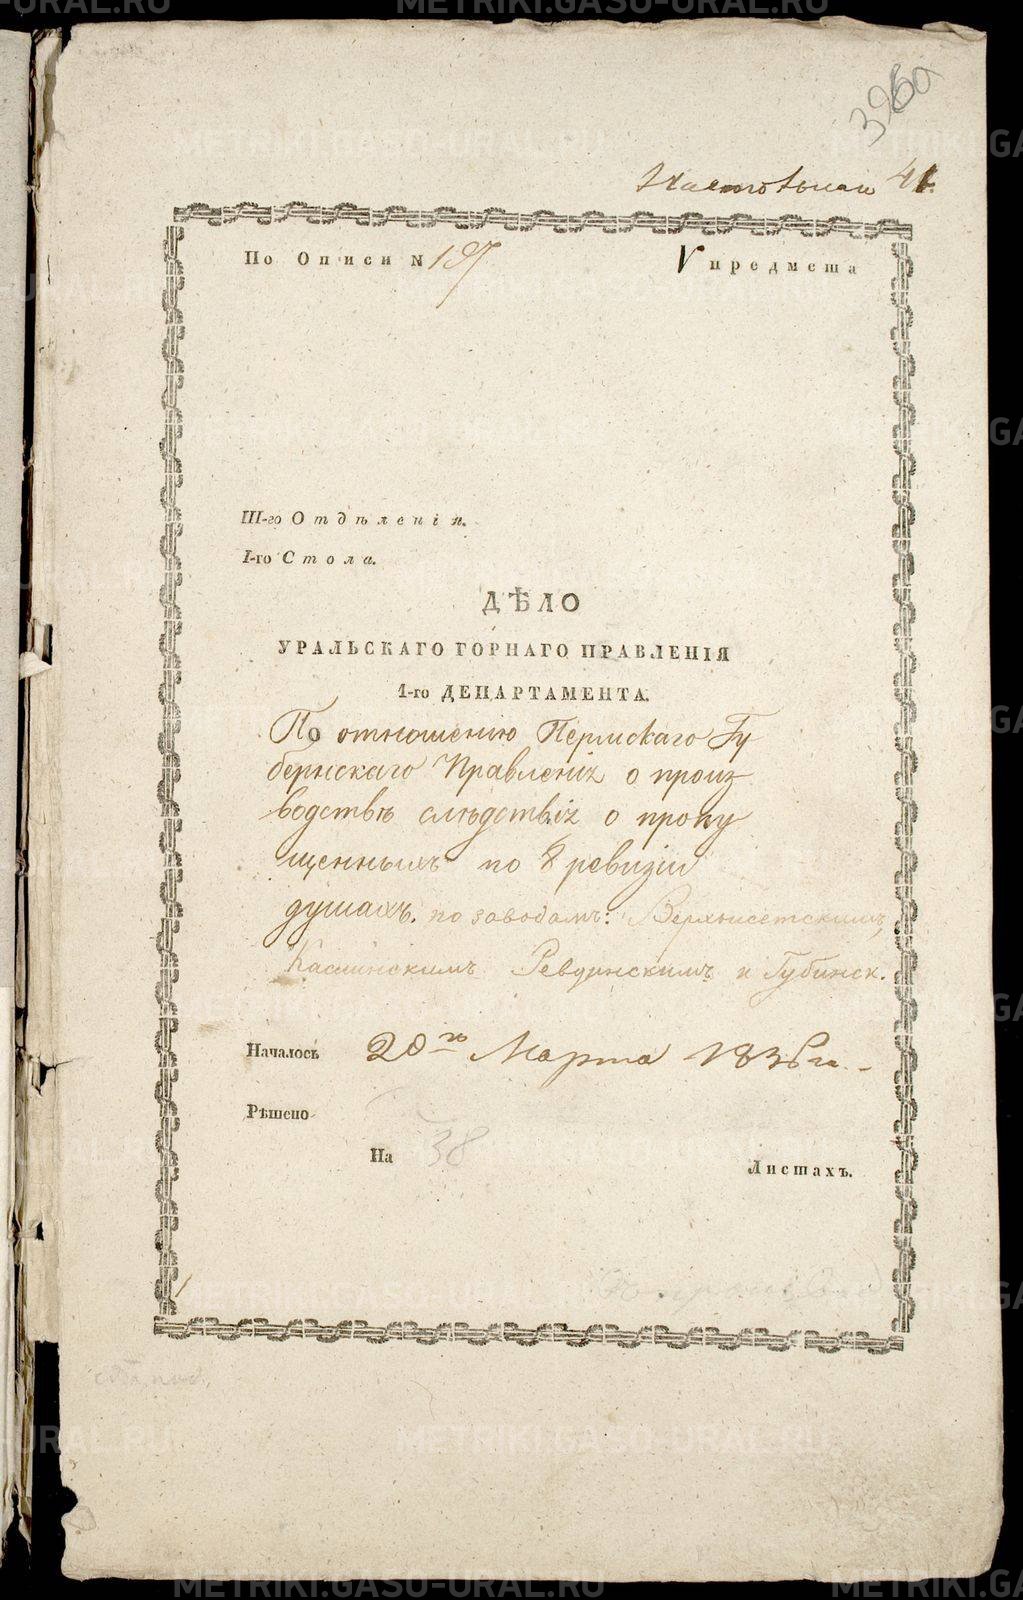 396а
Настольная 41.
По Описи N 197
V предмета
III-го Отдѣленія.
I-го Стола.
ДѢЛО
УРАЛЬСКАГО ГОРНАГО ПРАВЛЕНІЯ
1-го ДЕПАРТАМЕНТА.
По отношенію Пермскаго Гу
бернскаго Правленія о произ
водствѣ слѣдствія о пропу
щенныхъ по 8 ревизіи
душахъ. по заводамъ: Верхисетскимъ,
Каслинскимъ Ревдинскимъ и Губинск.
Началось 20го Марта 1836 го.
Рѣшено
На 38 Листахъ.
METRIKI.GASO-URAL.RU